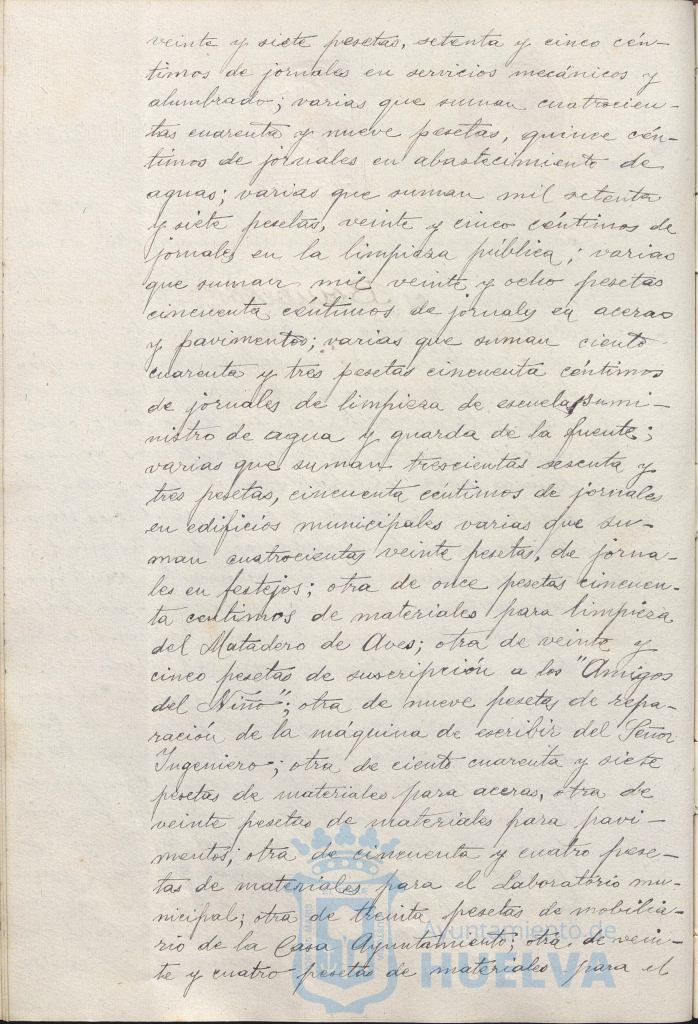 veinte y siete pesetas, setenta y cinco cén-
timos de jornales en servicios mecánicos y
alumbrado; varias que suman cuatrocien-
tas cuarenta y nueve pesetas, quince cén-
timos de jornales en abastecimiento de
aguas; varias que suman mil setenta
y siete pesetas, veinte y cinco céntimos de
jornales en la limpieza pública; varias
que suman mil veinte y ocho pesetas
cincuenta céntimos de jornales en aceras
y pavimentos; varias que suman ciento
cuarenta y tres pesetas cincuenta céntimos
de jornales de limpieza de escuelas, sumi-
nistro de agua y guarda de la fuente;
varias que suman trescientas sesenta y
tres pesetas, cincuenta céntimos de jornales
en edificios municipales varias que su-
man cuatrocientas veinte pesetas, de jorna-
les en festejos; otra de once pesetas cincuen-
ta centimos de materiales para limpieza
del Matadero de Aves; otra de veinte y
cinco pesetas de suscripción a los "Amigos
del Niño"; otra de nueve pesetas de repa-
ración de la máquina de escribir del Señor
Ingeniero; otra de ciento cuarenta y siete
pesetas de materiales para aceras, otra de
veinte pesetas de materiales para pavi-
mentos; otra de cincuenta y cuatro pese-
tas de materiales para el Laboratorio mu-
nicipal; otra de treinta pesetas de mobilia-
rio de la Casa Ayuntamiento; otra de vein-
te y cuatro pesetas de materiales para el
Ayuntamiento de
HUELVA